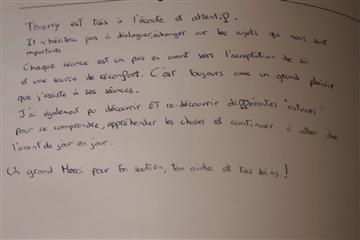 Thierry est très à l'écoute et attentif.
Il n'hésitera pas à dialoguer, échanger sur les sujets qui nous sont
importants
Chaque séance est un pas en avant vers l'acceptation de soi
et une source de réconfort. C'est toujours avec un grand plaisir
que j'assiste à ses séances.
J'ai également pu découvrir ET re-découvrir différentes "astuces"
pour se comprendre, appréhender les choses et continuer à aller de
l'avant de jour en jour.
Un grand Merci pour ton soutien, ton aide et tes soins !